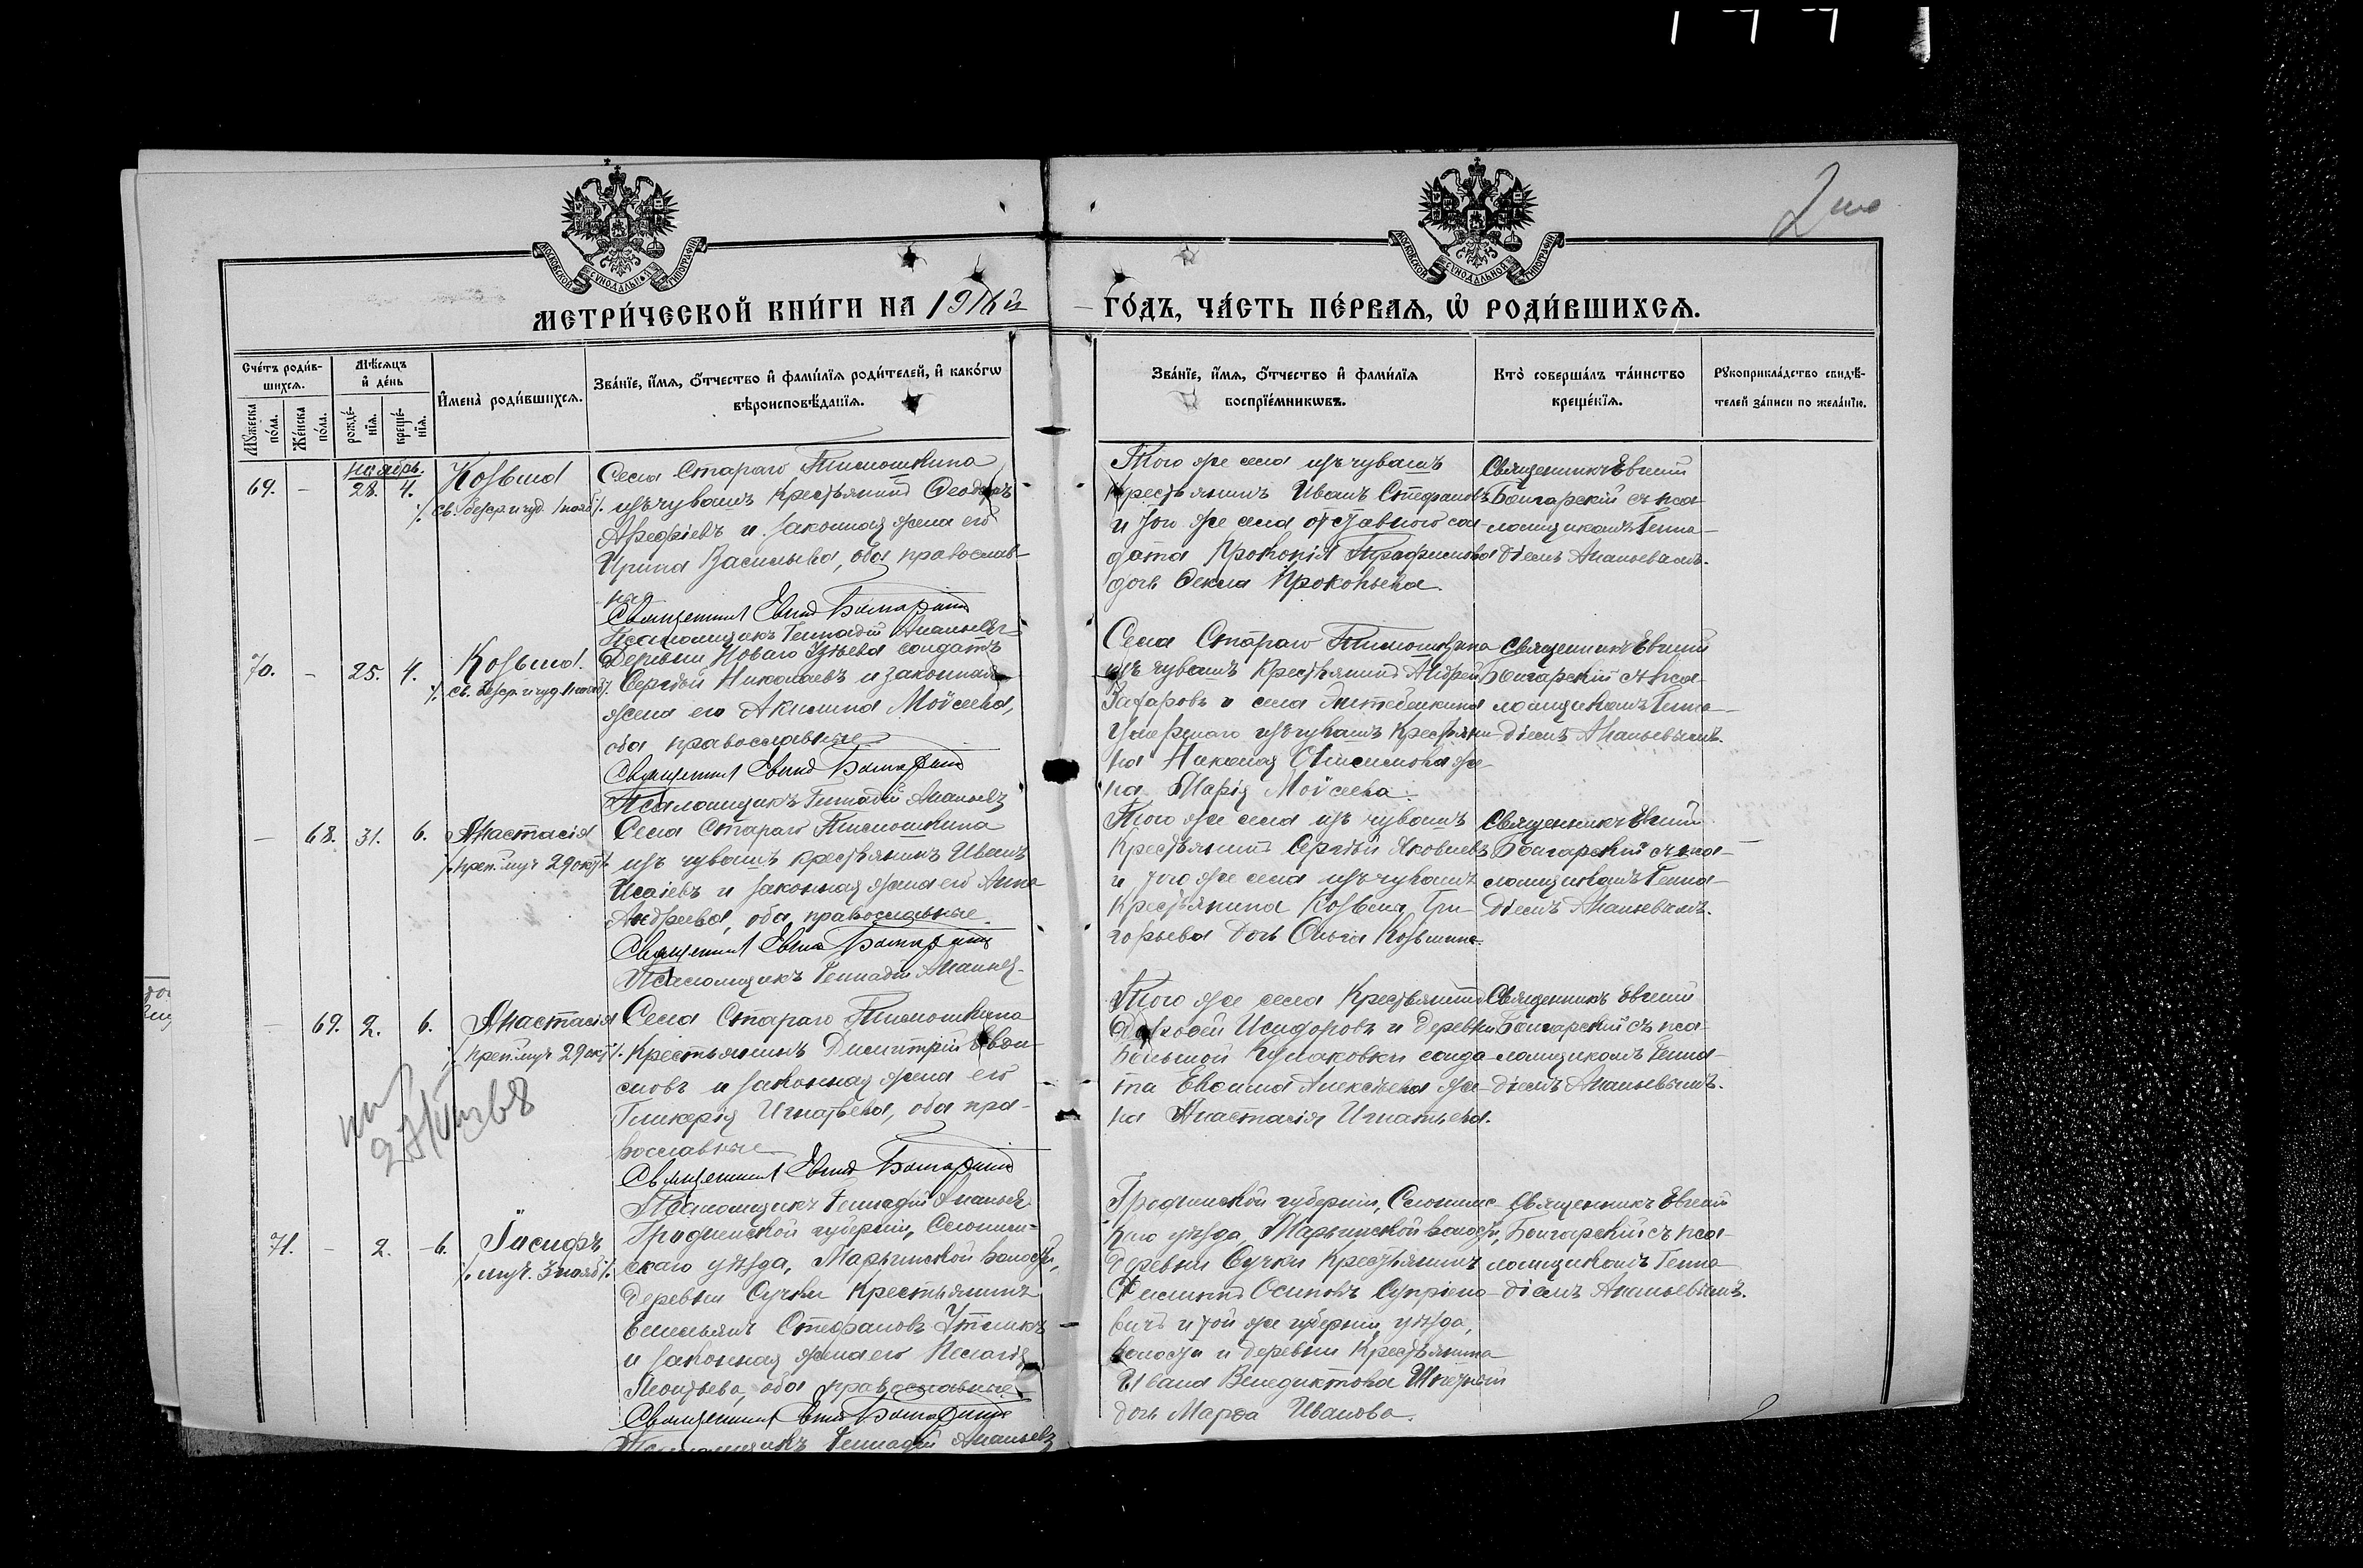 2
МОСКОВСКОЙ СУНОДАЛЬНОЙ ТИПОГРАФІИ
МОСКОВСКОЙ СУНОДАЛЬНОЙ ТИПОГРАФІИ
МЕТРИ́ЧЕСКОЙ КНИ́ГИ НА 1916й
ГО́ДЪ, ЧА́СТЬ ПЕ́РВАЯ, Ѡ҆ РОДИ́ВШИХСЯ.
Сче́тъ роди́в-
шихся.
Мꙋжеска по́ла.
Же́нска по́ла.
Мѣ́сяцъ и҆ де́нь
рожде́-нїя.
креще́-нїя.
И҆мена̀ роди́вшихся.
Зва́нїе, и҆́мя, ѻ҆́тчество и҆ фами́лїя роди́телей, и҆ како́гѡ
вѣроисповѣ́данїя.
Зва́нїе, и҆́мя, ѻ҆́тчество и҆ фами́лїя
воспрїе́мникѡвъ.
Кто̀ соверша́лъ та́инство
креще́нїя.
Рꙋкоприкла́дство свидѣ́-
телей за́писи по жела́нїю.
Ноябрь.
69. - 28. 4. Козьма
/св. безср. и чуд. 1 нояб/.
Села Стараго Тимошкина
изъ чувашъ крестьянинъ Ѳеодоръ
Арефіевъ и законная жена его
Ирина Васильева, оба православ-
ные
Священникъ Евгній Болгарскій
Псаломщикъ Геннадій Ананьевъ
Того же села изъ чувашъ
крестьянинъ Иванъ Стефановъ
и того же села отставного сол-
дата Прокопія Трофимова
дочь Ѳекла Прокопьева.
Священникъ Евгній
Болгарскій съ пса-
ломщикомъ Генна-
діемъ Ананьевымъ.
70. - 25. 4. Козьма.
/св. безср. и чуд. 1 нояб/.
Деревни Новаго солдатъ
Сергѣй Николаевъ и законная
жена его Акилина Моѵсеева,
оба православные
Священникъ Евгній Болгарскій
Псаломщикъ Геннадій Ананьевъ
Села Стараго Тимошкина
изъ чувашъ крестьянинъ Андрей
Захаровъ и села
умершаго изъ чувашъ крестьяни-
на Николая Анисимова же-
на Марія Моѵсеева.
Священникъ Евгній
Болгарскій съ пса-
ломщикомъ Генна-
діемъ Ананьевымъ.
- 68. 31. 6. Анастасія
/преп. муч. 29 окт/.
Села Стараго Тимошкина
изъ чувашъ крестьянинъ Иванъ
Исаіевъ и законная жена его Анна
Андреева, оба православные
Священникъ Евгній Болгарскій
Псаломщикъ Геннадій Ананьевъ
Того же села изъ чувашъ
крестьянинъ Сергѣй Яковлевъ
и того же села изъ чувашъ
крестьянина Козьмы Гри-
горьева дочь Ольга Козьмина.
Священникъ Евгній
Болгарскій съ пса-
ломщикомъ Генна-
діемъ Ананьевымъ.
- 69. 2. 6. Анастасія
/преп. муч. 29 окт/.
Села Стараго Тимошкина
крестьянинъ Димитрій Евѳи-
мовъ и законная жена его
Гликерія Игнатьева, оба пра-
вославные
Священникъ Евгній Болгарскій
Псаломщикъ Геннадій Ананьевъ
Того же села крестьянинъ
Исидоровъ и деревни
Большой Кулаковки солда-
та Евѳимія Алексѣева же-
на Анастасія Игнатьева.
Священникъ Евгній
Болгарскій съ пса-
ломщикомъ Генна-
діемъ Ананьевымъ.
71. - 2. - 6. Іосифъ
/муч. 3 нояб/.
Гродненской губерніи, Слоним-
скаго уѣзда, Марьинской волости,
деревни Сучки крестьянинъ
Емельянъ Стефановъ
и законная жена его Пелагія
Леонтьева, оба православные
Священникъ Евгній Болгарскій
Псаломщикъ Геннадій Ананьевъ
Гродненской губерніи, Слонимс-
каго уѣзда, Марьинской волости,
деревни Сучки крестьянинъ
Осиповъ
вичъ и той же губерніи, уѣзда,
волости и деревни крестьянина
Ивана Венедиктова
дочь Марѳа Иванова.
Священникъ Евгній
Болгарскій съ пса-
ломщикомъ Генна-
діемъ Ананьевымъ.